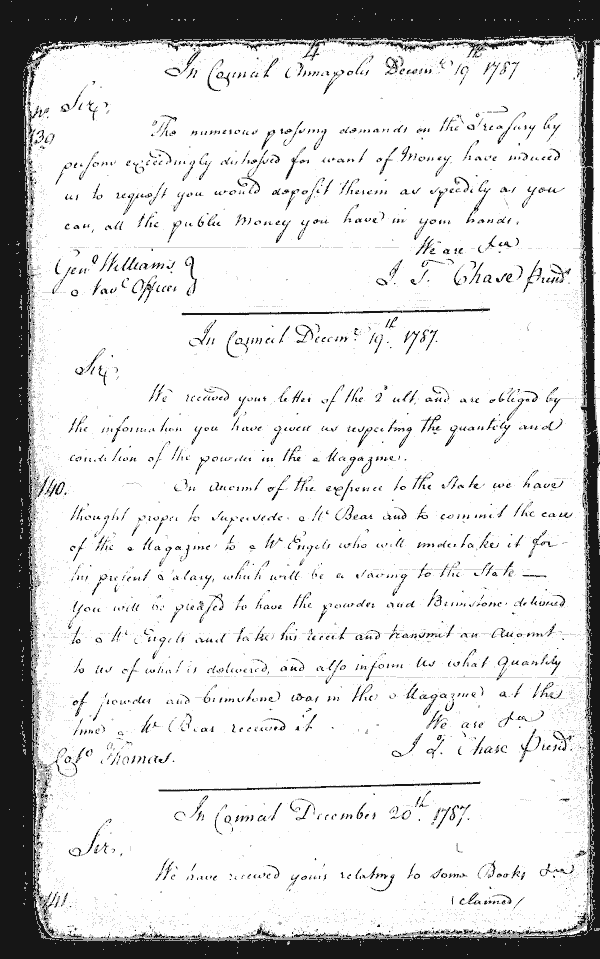 4
In Council Annapolis Decemr. 19th 1787
Sir,
No.
139
The numerous pressing demands on the Treasury by
persons exceedingly distressed for want of Money have induced
us to request you would deposit therein as speedily as you
can, all the public Money you have in your hands.
We are &ca
Genl. Williams }
Navl. Officer }
J. T. Chase Presdt.
In Council Decemr. 19th. 1787.
Sir,
We received your letter of the 2d ult. and are obliged by
the information you have given us respecting the quantity and
condition of the powder in the Magazine.
140.
On account of the expence to the State we have
thought proper to supersede Mr Bear and to commit the care
of the Magazine to Mr Engels who will undertake it for
his present Salary, which will be a saving to the State —
You will be pleased to have the powder and Brimstone delivered
to Mr Engels and take his receit and transmit an Account
to us of what is delivered, and also inform us what Quantity
of powder and brimstone was in the Magazine at the
time Mr Bear received it.
We are &ca
Colo. Thomas.
J. T. Chase Presdt.
In Council December 20th. 1787.
Sir,
We have received yours relating to some Books &ca
141.
claimed/